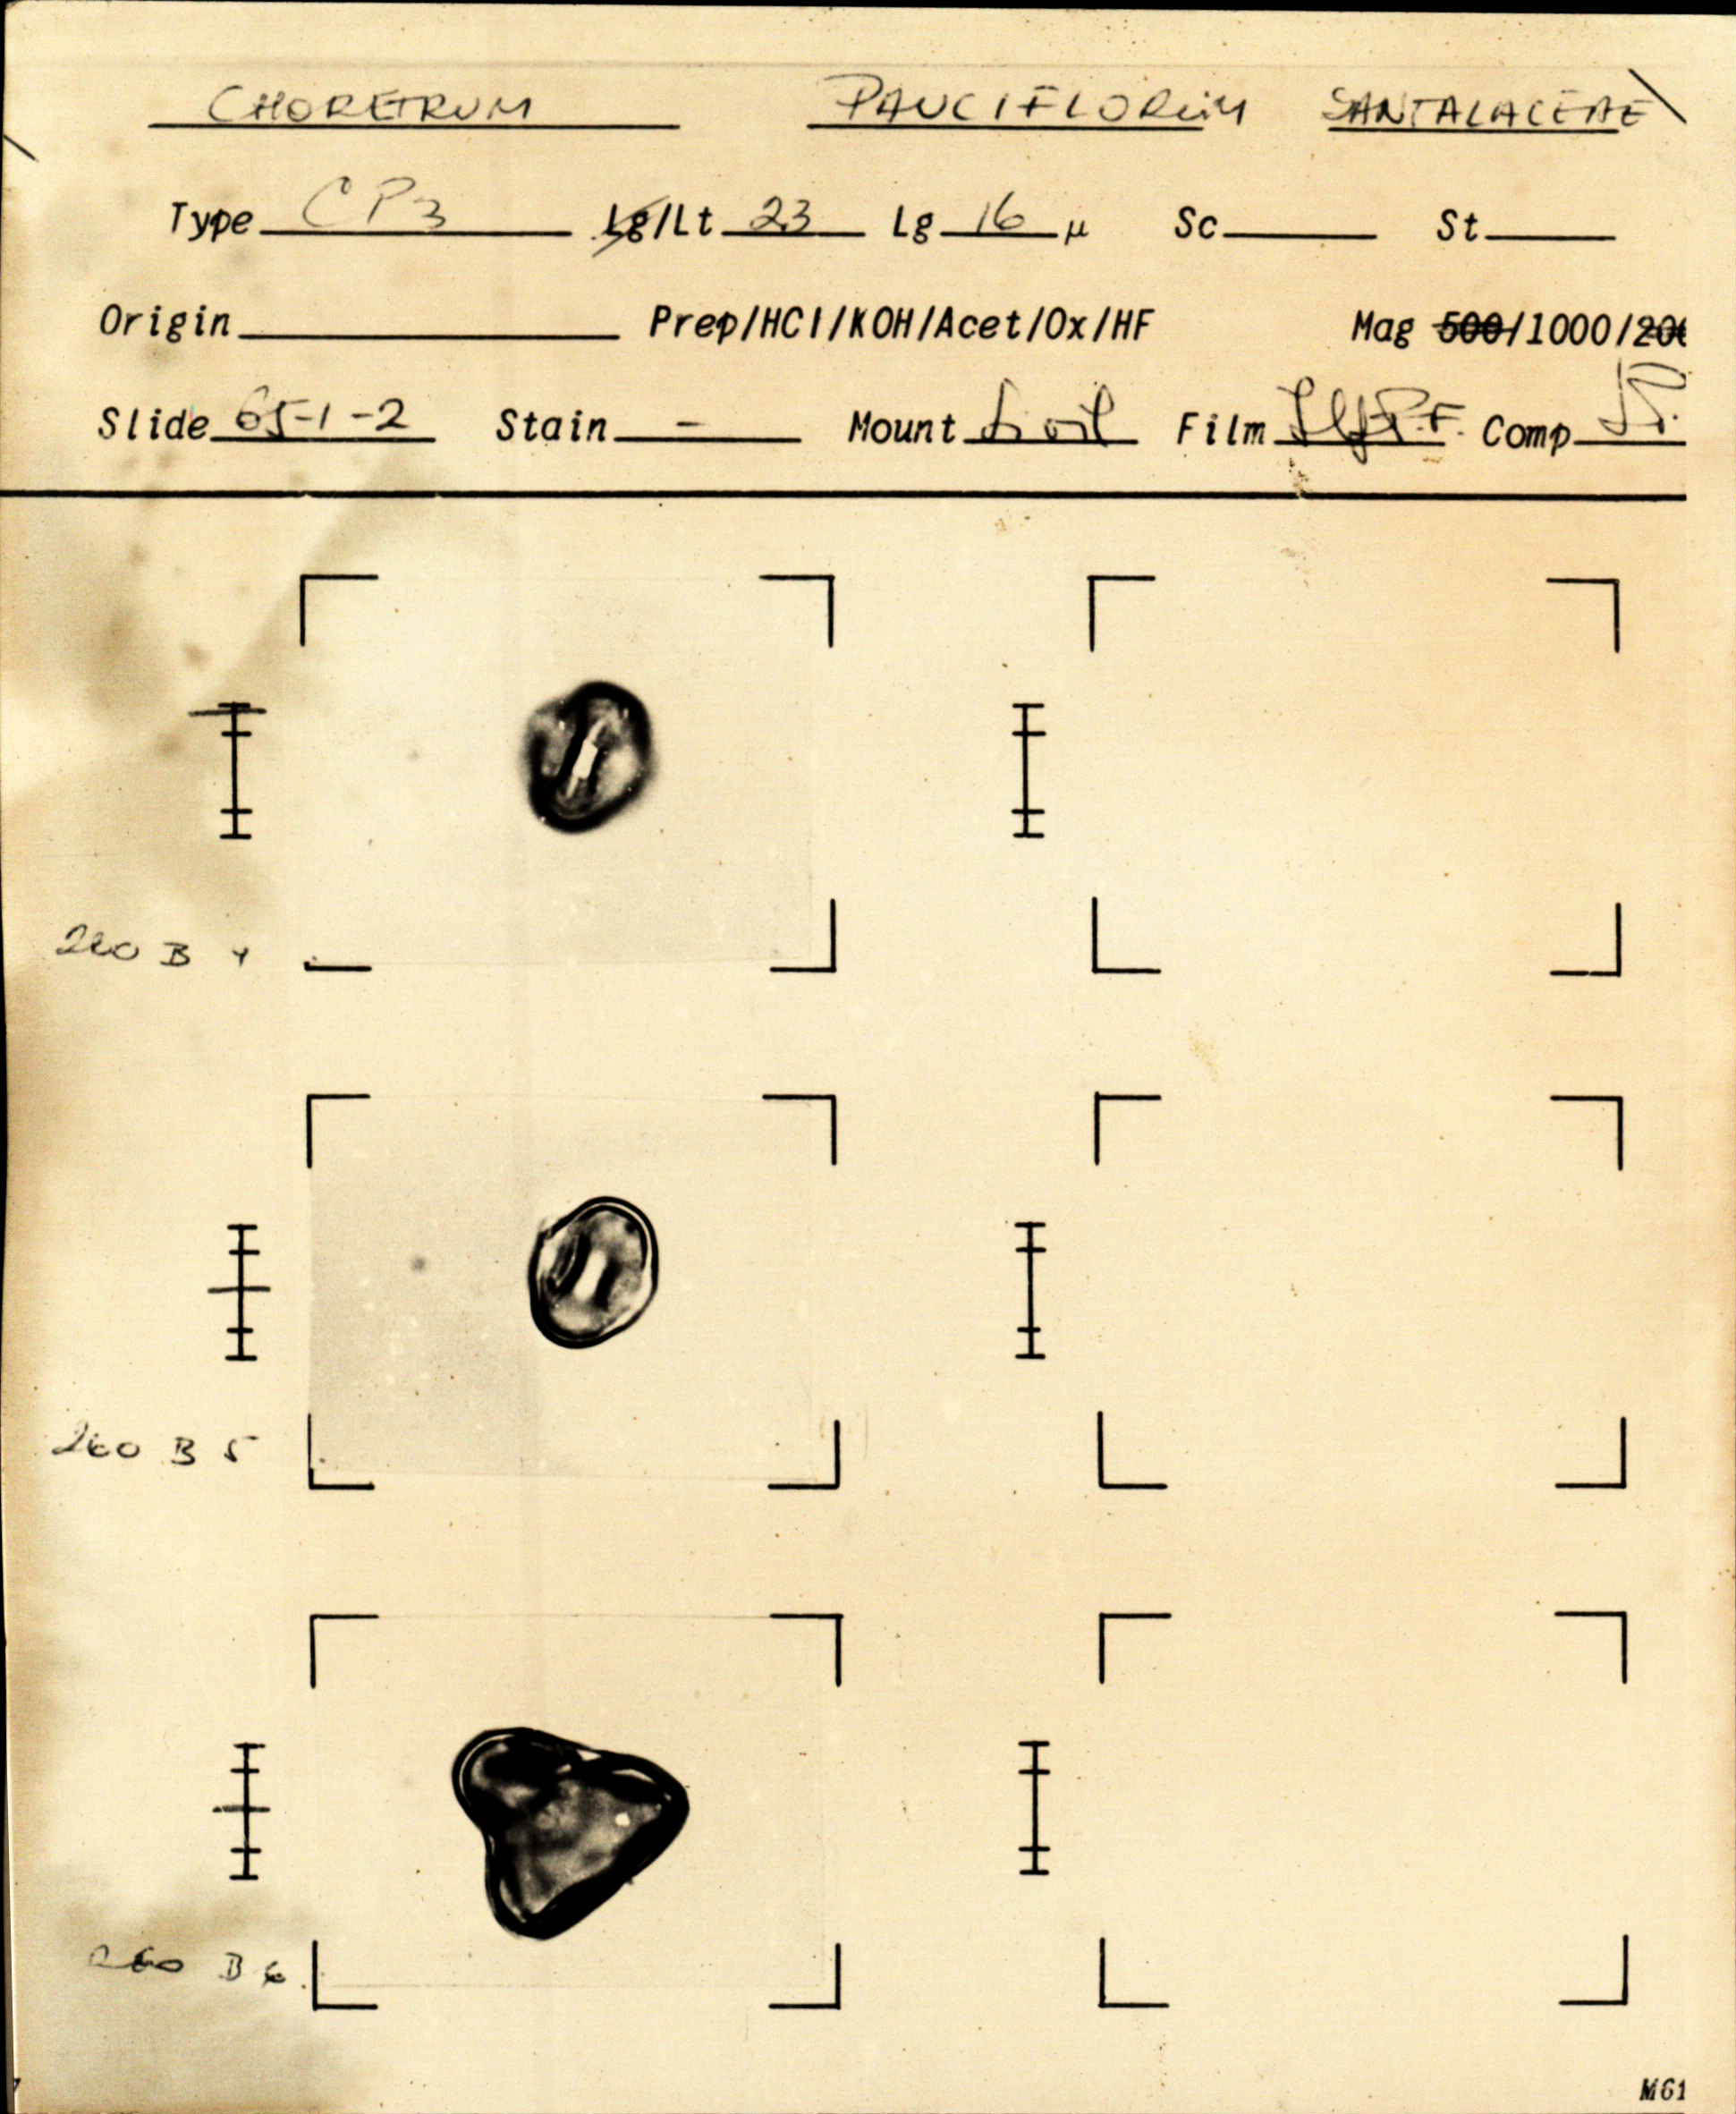 CHORETRUM PAUCIFLORUM SANTALACEAE
Type CP3 Lg/Lt 23 Lg 16 μ Sc St
Origin Prep/HCl/KOH/Acet/Ox/HF Mag 500/1000/200
Slide 65-1-2 Stain - Mount S. oil Film Comp
260 B 4
260 B 5
260 B 6
M61